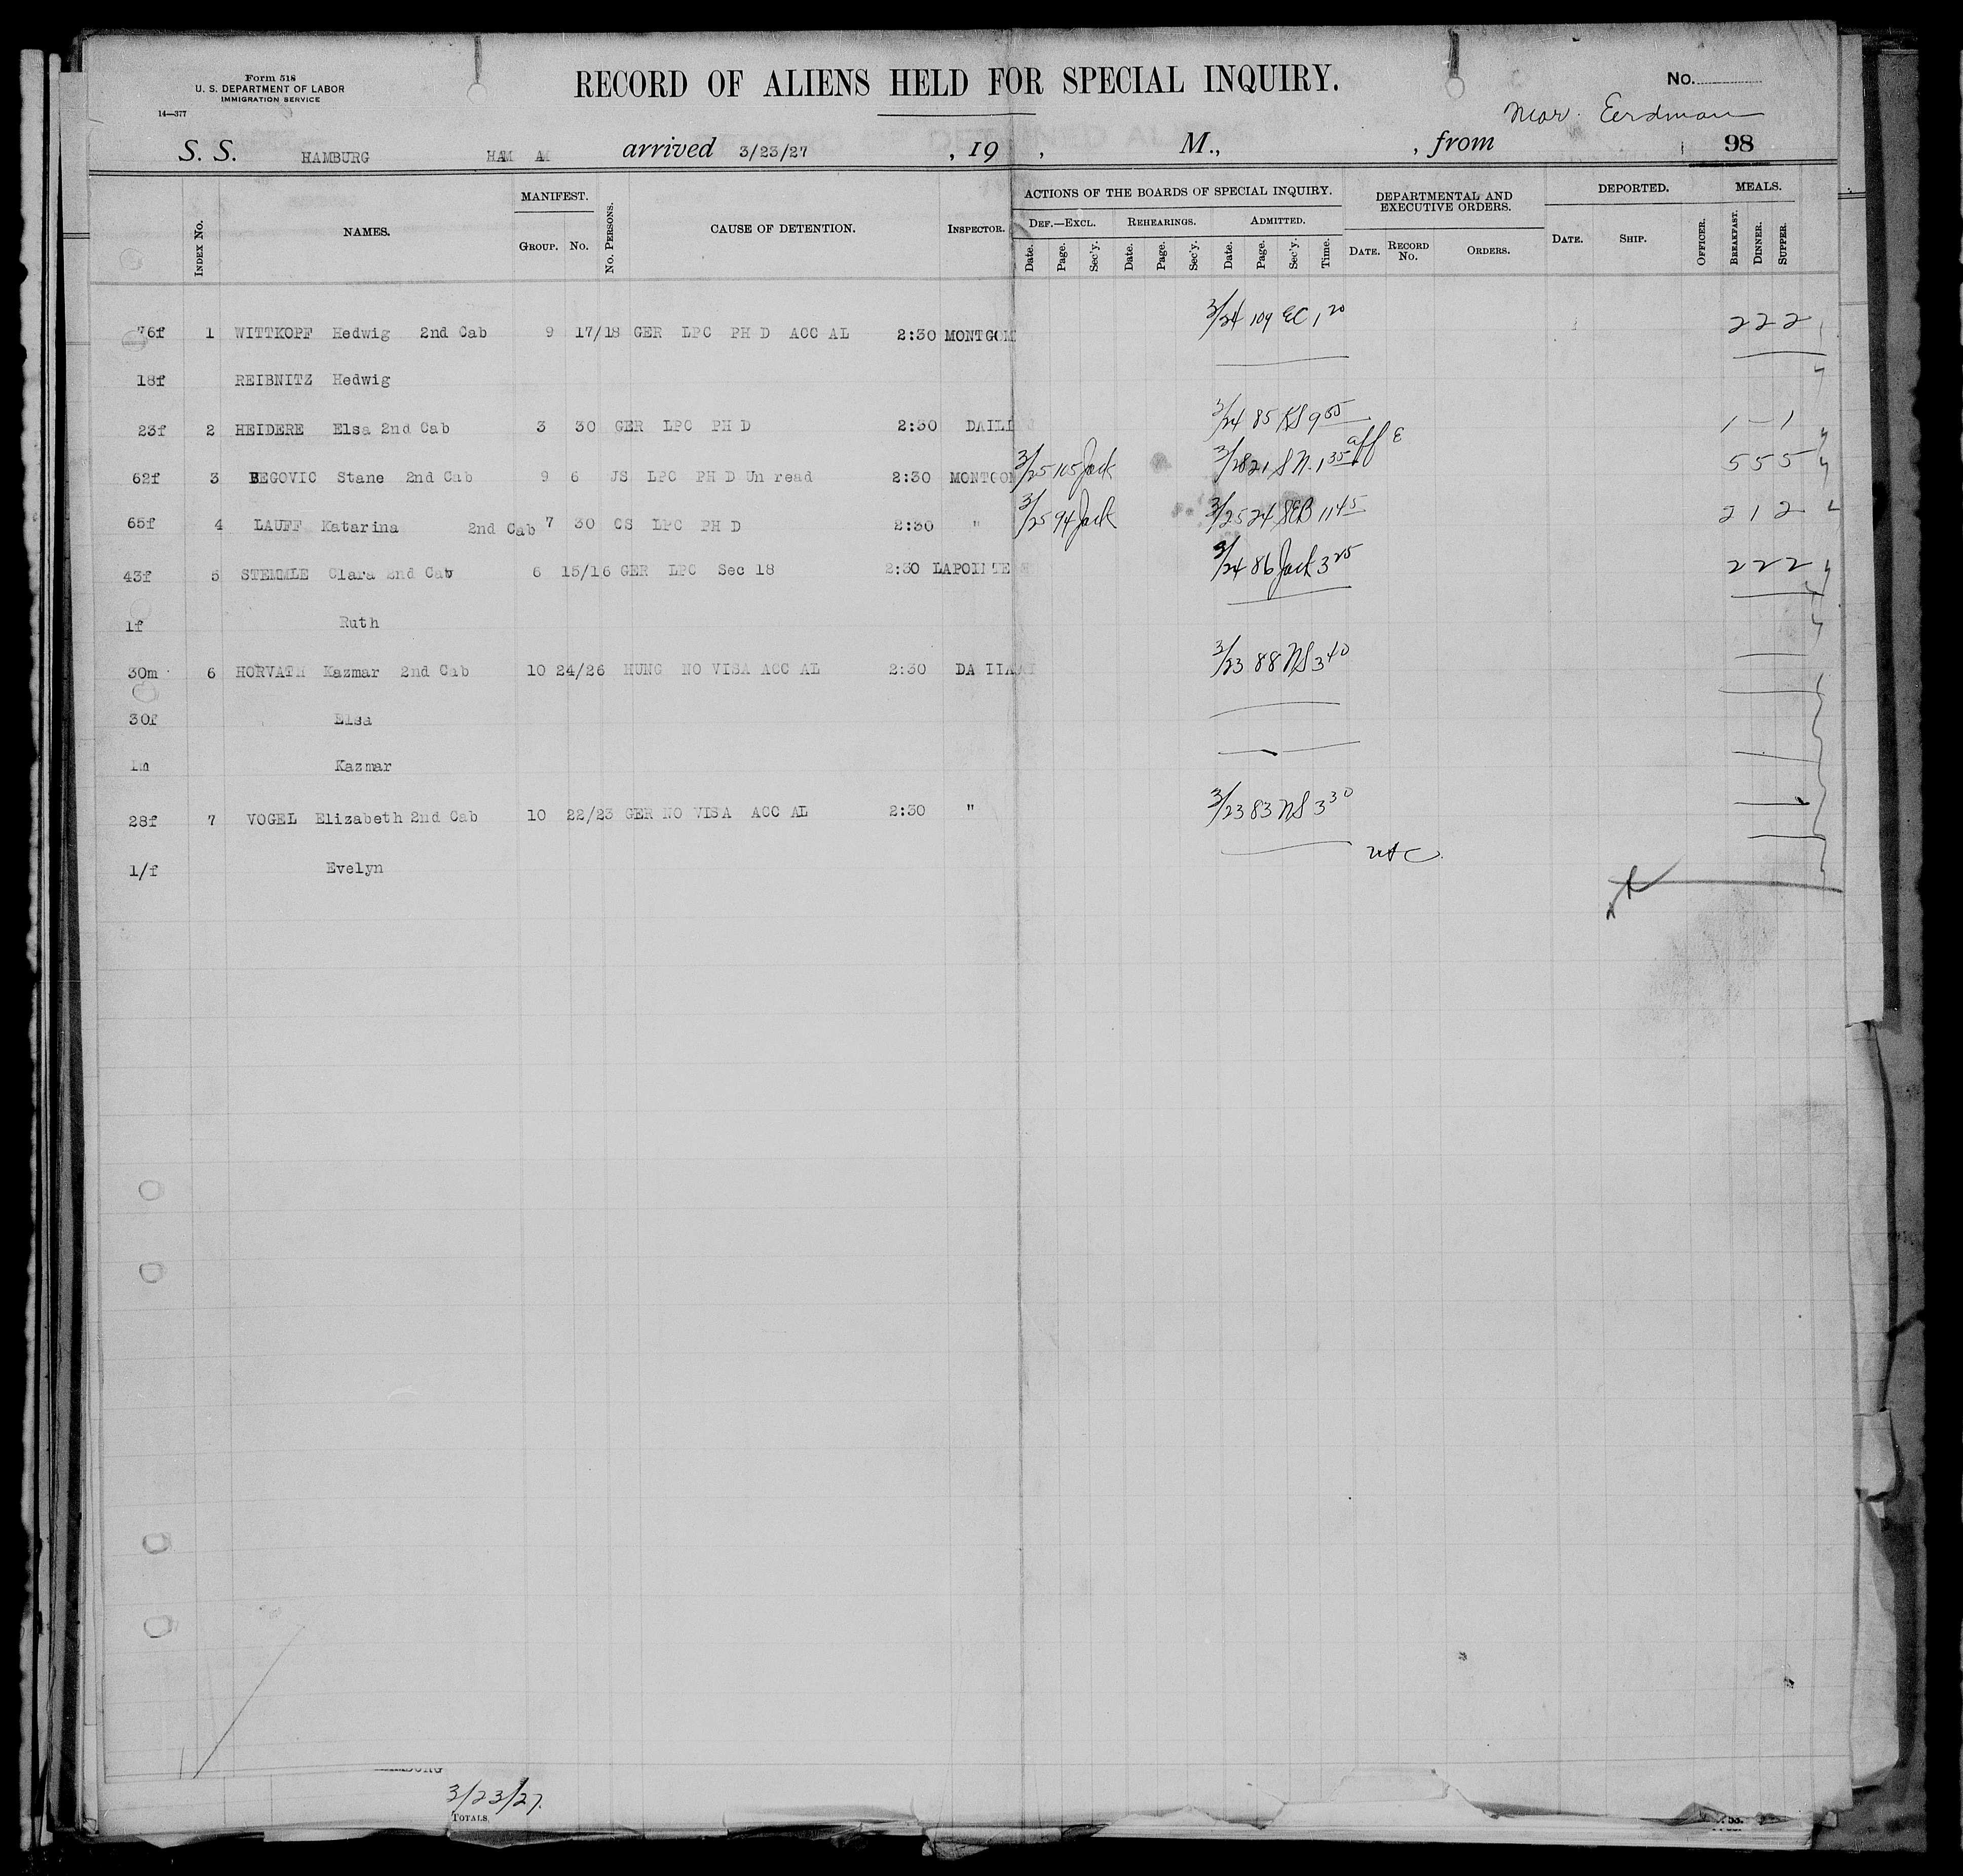 Form 518
U. S. DEPARTMENT OF LABOR
IMMIGRATION SERVICE
14—377
RECORD OF ALIENS HELD FOR SPECIAL INQUIRY.
No.
Mar. Eerdman
S. S. HAMBURG HAM AM arrived 3/23/27 , 19 , M., , from 98
INDEX No. NAMES. MANIFEST. GROUP. No. No. PERSONS. CAUSE OF DETENTION. INSPECTOR. ACTIONS OF THE BOARDS OF SPECIAL INQUIRY. DEF.—EXCL. Date. Page. Sec'y. REHEARINGS. Date. Page. Sec'y. ADMITTED. Date. Page. Sec'y. Time. DEPARTMENTAL AND EXECUTIVE ORDERS. DATE. RECORD No. ORDERS. DEPORTED. DATE. SHIP. OFFICER. MEALS. BREAKFAST. DINNER. SUPPER.
76f 1 WITTKOPF Hedwig 2nd Cab 9 17/18 GER LPC PH D ACC AL 2:30 MONTGOM 3/24 109 EC 1 20 2 2 2
18f REIBNITZ Hedwig
23f 2 HEIDERE Elsa 2nd Cab 3 30 GER LPC PH D 2:30 DAILI 3/24 85 KS 9 55 1 – 1
62f 3 BEGOVIC Stane 2nd Cab 9 6 JS LPC PH D Un read 2:30 MONTGOM 3/25 105 Jack 3/28 21 S N. 1 35 aff E 5 5 5
65f 4 LAUFF Katarina 2nd Cab 7 30 CS LPC PH D 2:30 " 3/25 94 Jack 3/25 24 SEB 11 45 2 1 2
43f 5 STEMMLE Clara 2nd Cab 6 15/16 GER LPC Sec 18 2:30 LAPOINTE 3/24 86 Jack 3 25 2 2 2
1f Ruth
30m 6 HORVATH Kazmar 2nd Cab 10 24/26 HUNG NO VISA ACC AL 2:30 3/23 88 NS 3 40
30f Elsa
1m Kazmar
28f 7 VOGEL Elizabeth 2nd Cab 10 22/23 GER NO VISA ACC AL 2:30 " 3/23 83 NS 3 30
1/f Evelyn
3/23/27.
TOTALS